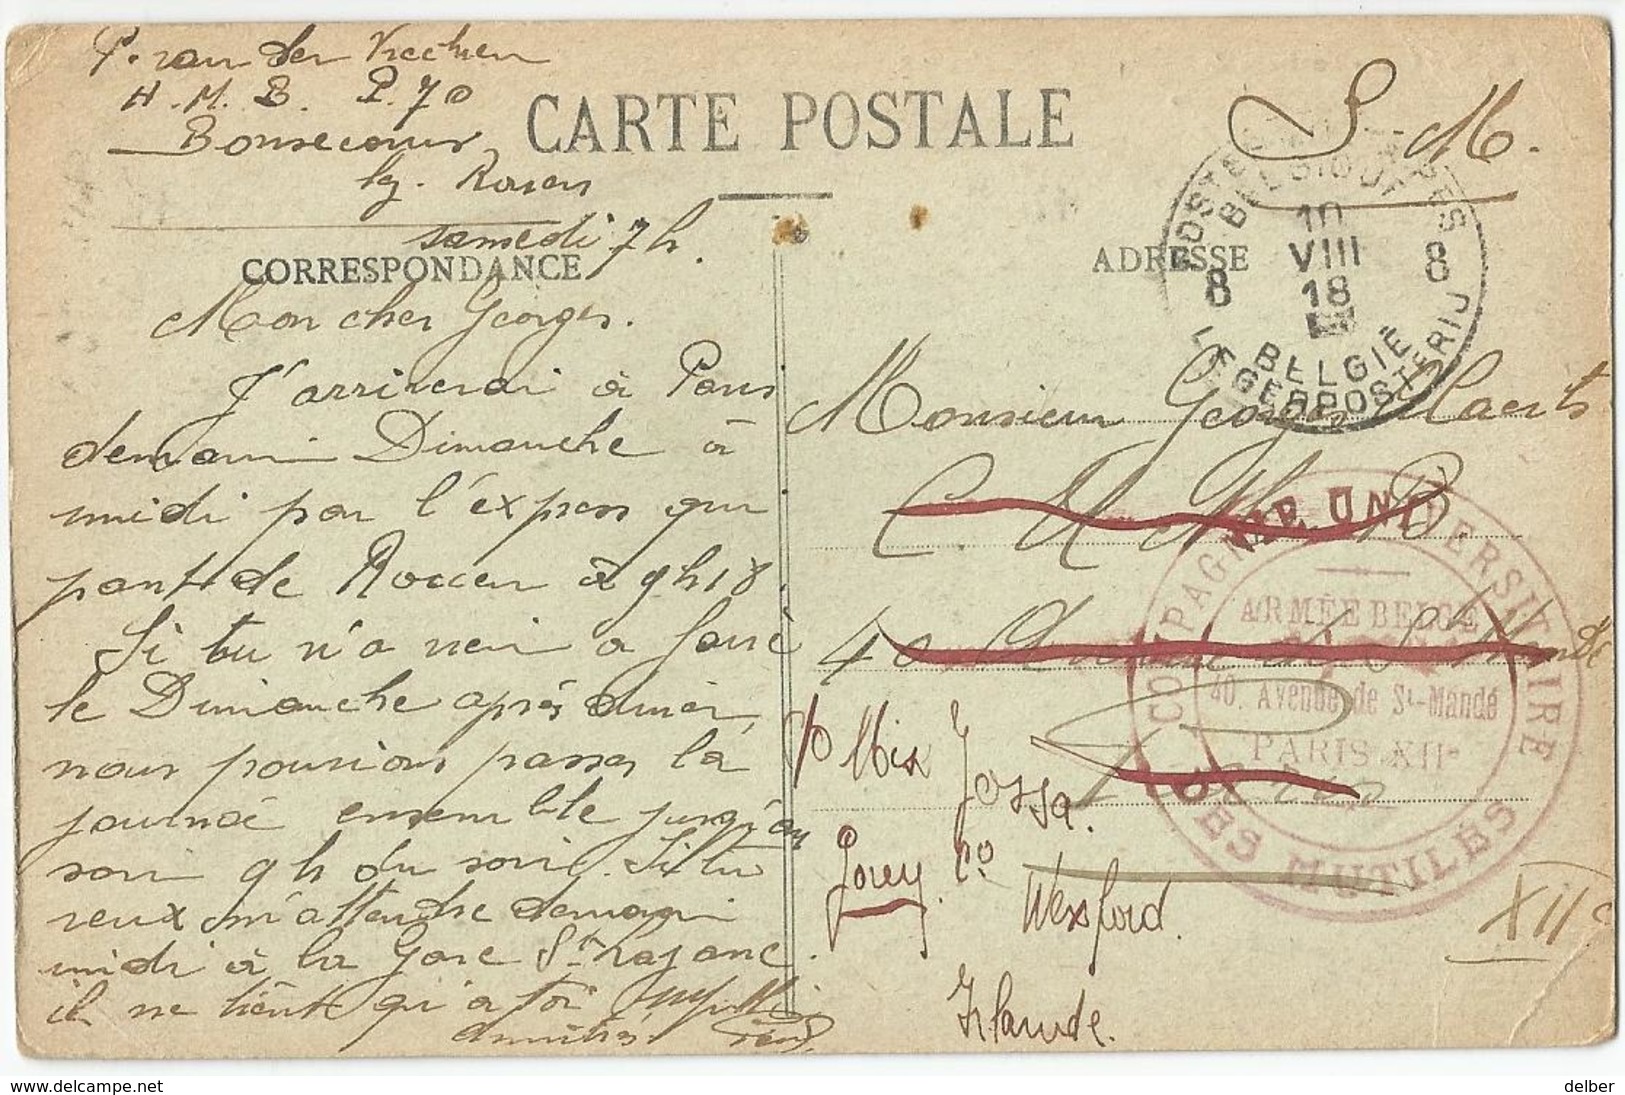 P. van der
H.M.B. P.70
Bonsecours
lg. Rouen
CARTE POSTALE
S.M.
samedi 7h.
CORRESPONDANCE
ADRESSE
POSTES MILITAIRES
BELGIQUE
10
VIII
18
8 8
BELGIË
LEGERPOSTERIJ
Mon cher Georges.
J'arriverai à Paris
demain Dimanche à
midi par l'express qui
part de Rouen à 9h18.
Si tu n'a rien a faire
le Dimanche après diner,
nous pourions passer la
journée ensemble jusqu'au
soir 9h du soir. Si tu
veux m'attendre demain
midi à la Gare St Lazare.
il ne tient qu'a toi
amitiés
Monsieur Georges
C. U. M. B.
40 Avenue de St Mandé
COMPAGNIE UNIVERSITAIRE
DES MUTILÉS
ARMÉE BELGE
40. Avenue de St-Mandé
PARIS XIIe
Paris
XIIe
c/o Miss Jossa.
Gorey. Co
Wexford.
Irlande.
delber